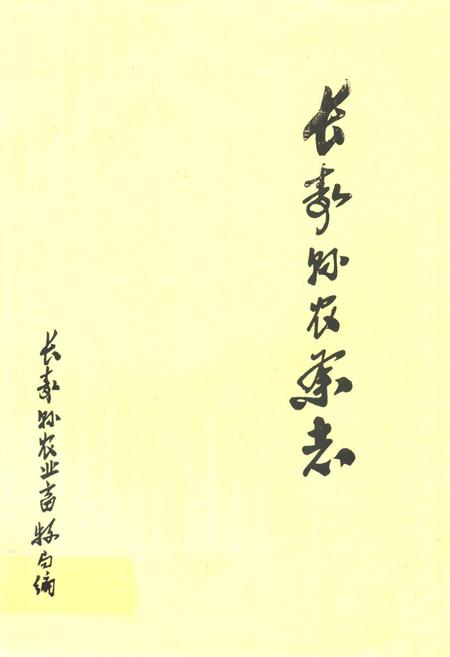 长寿县农业志
长寿县农业畜牧局编